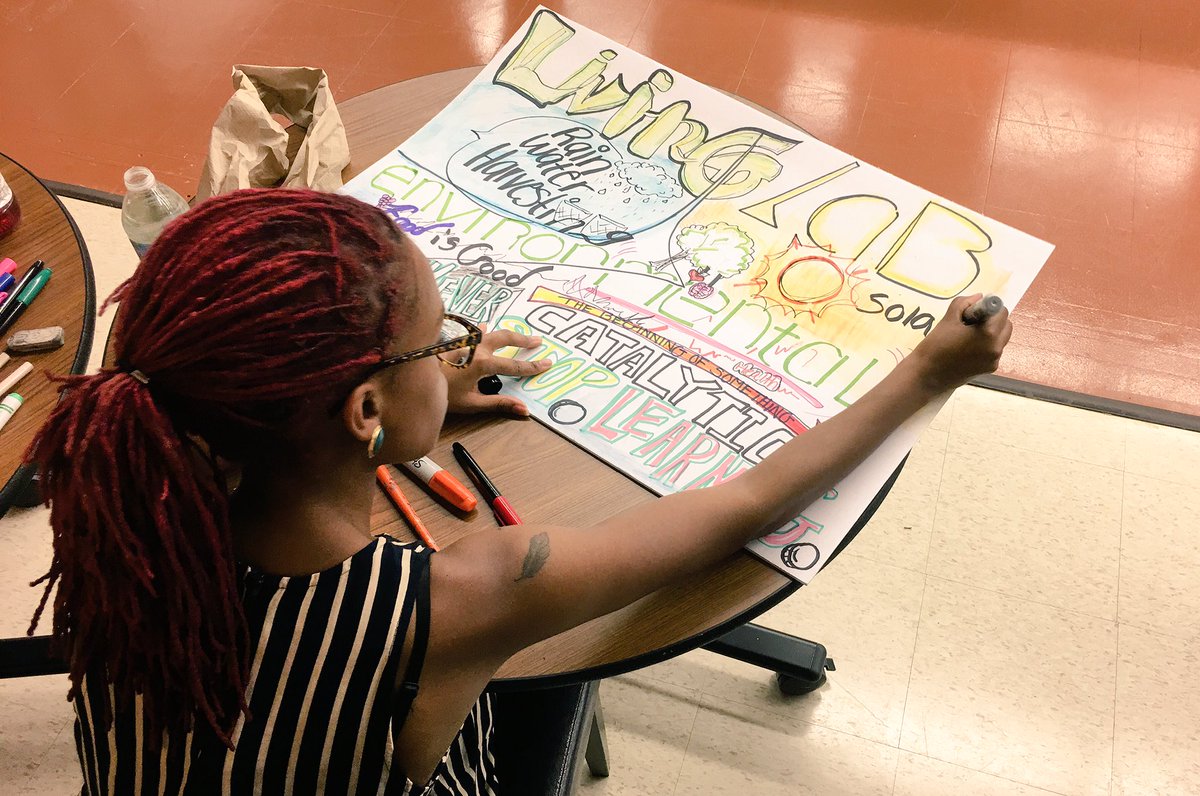 Living lab
Rain
Water
Harvesting
environmental
Food is Good
EVER!
sola
THE BEGINNING OF SOMETHING
CATALYTIC
LEARN